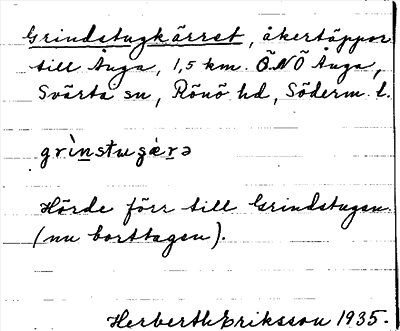 Grindstugkärret, åkertäppor
till Ånga, 1,5 km. ÖNÖ Ånga,
Svärta sn, Rönö hd, Söderm. l.
grìnstugæ̀rə
Hörde förr till Grindstugan
(nu borttagen).
Herberth Eriksson 1935.